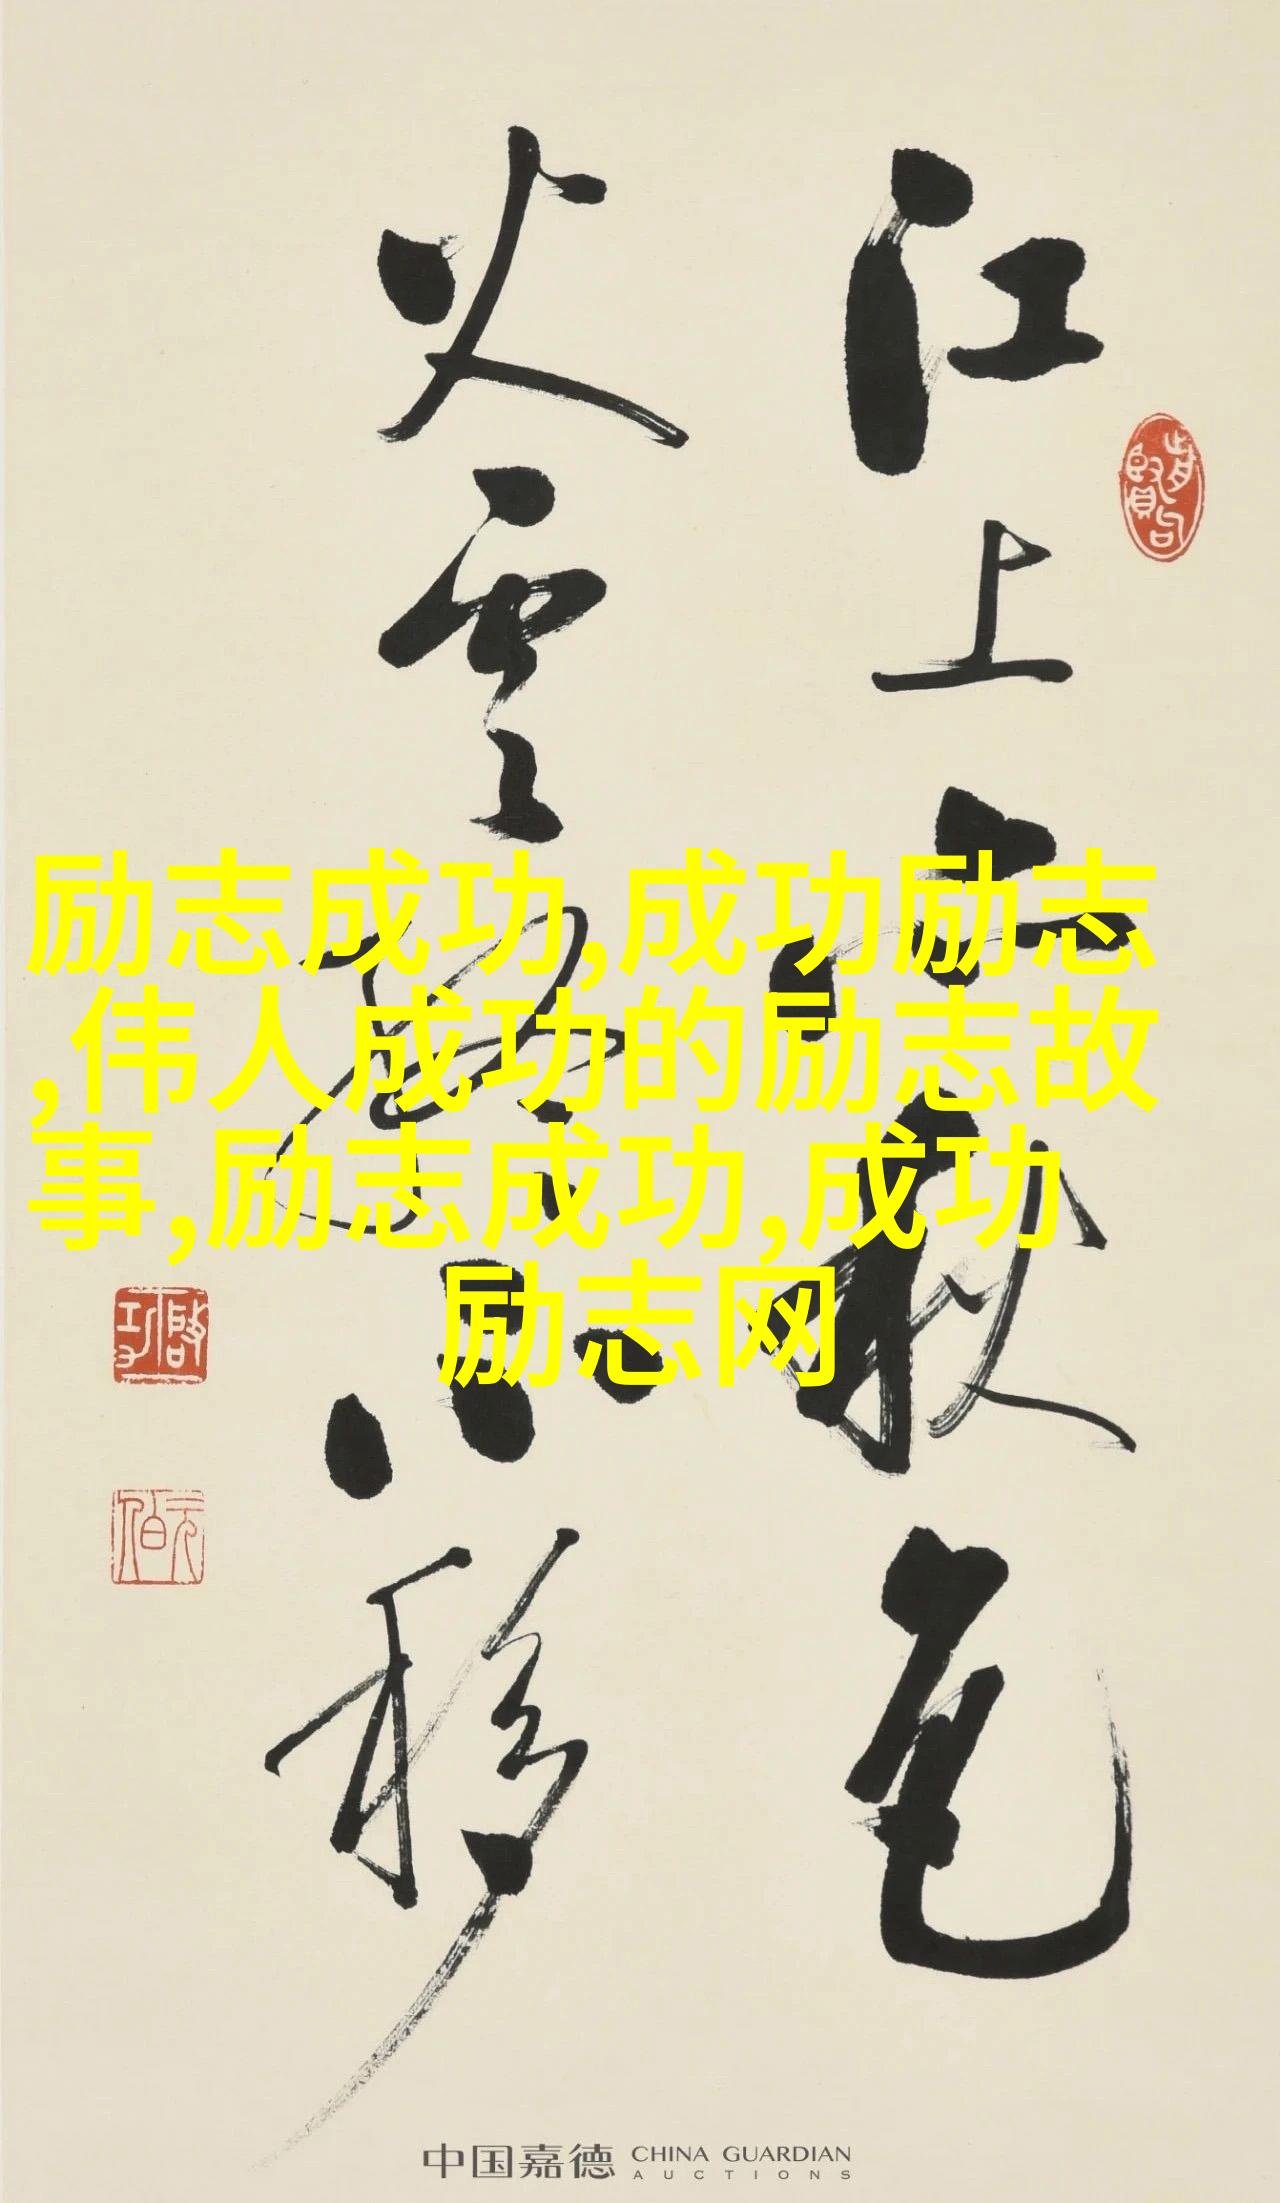 江上亦秋色
火雲終不移
励志成功,成功励志
,伟人成功的励志故
事,励志成功,成功
励志网
啟功
元伯
中国嘉德 CHINA GUARDIAN
AUCTIONS